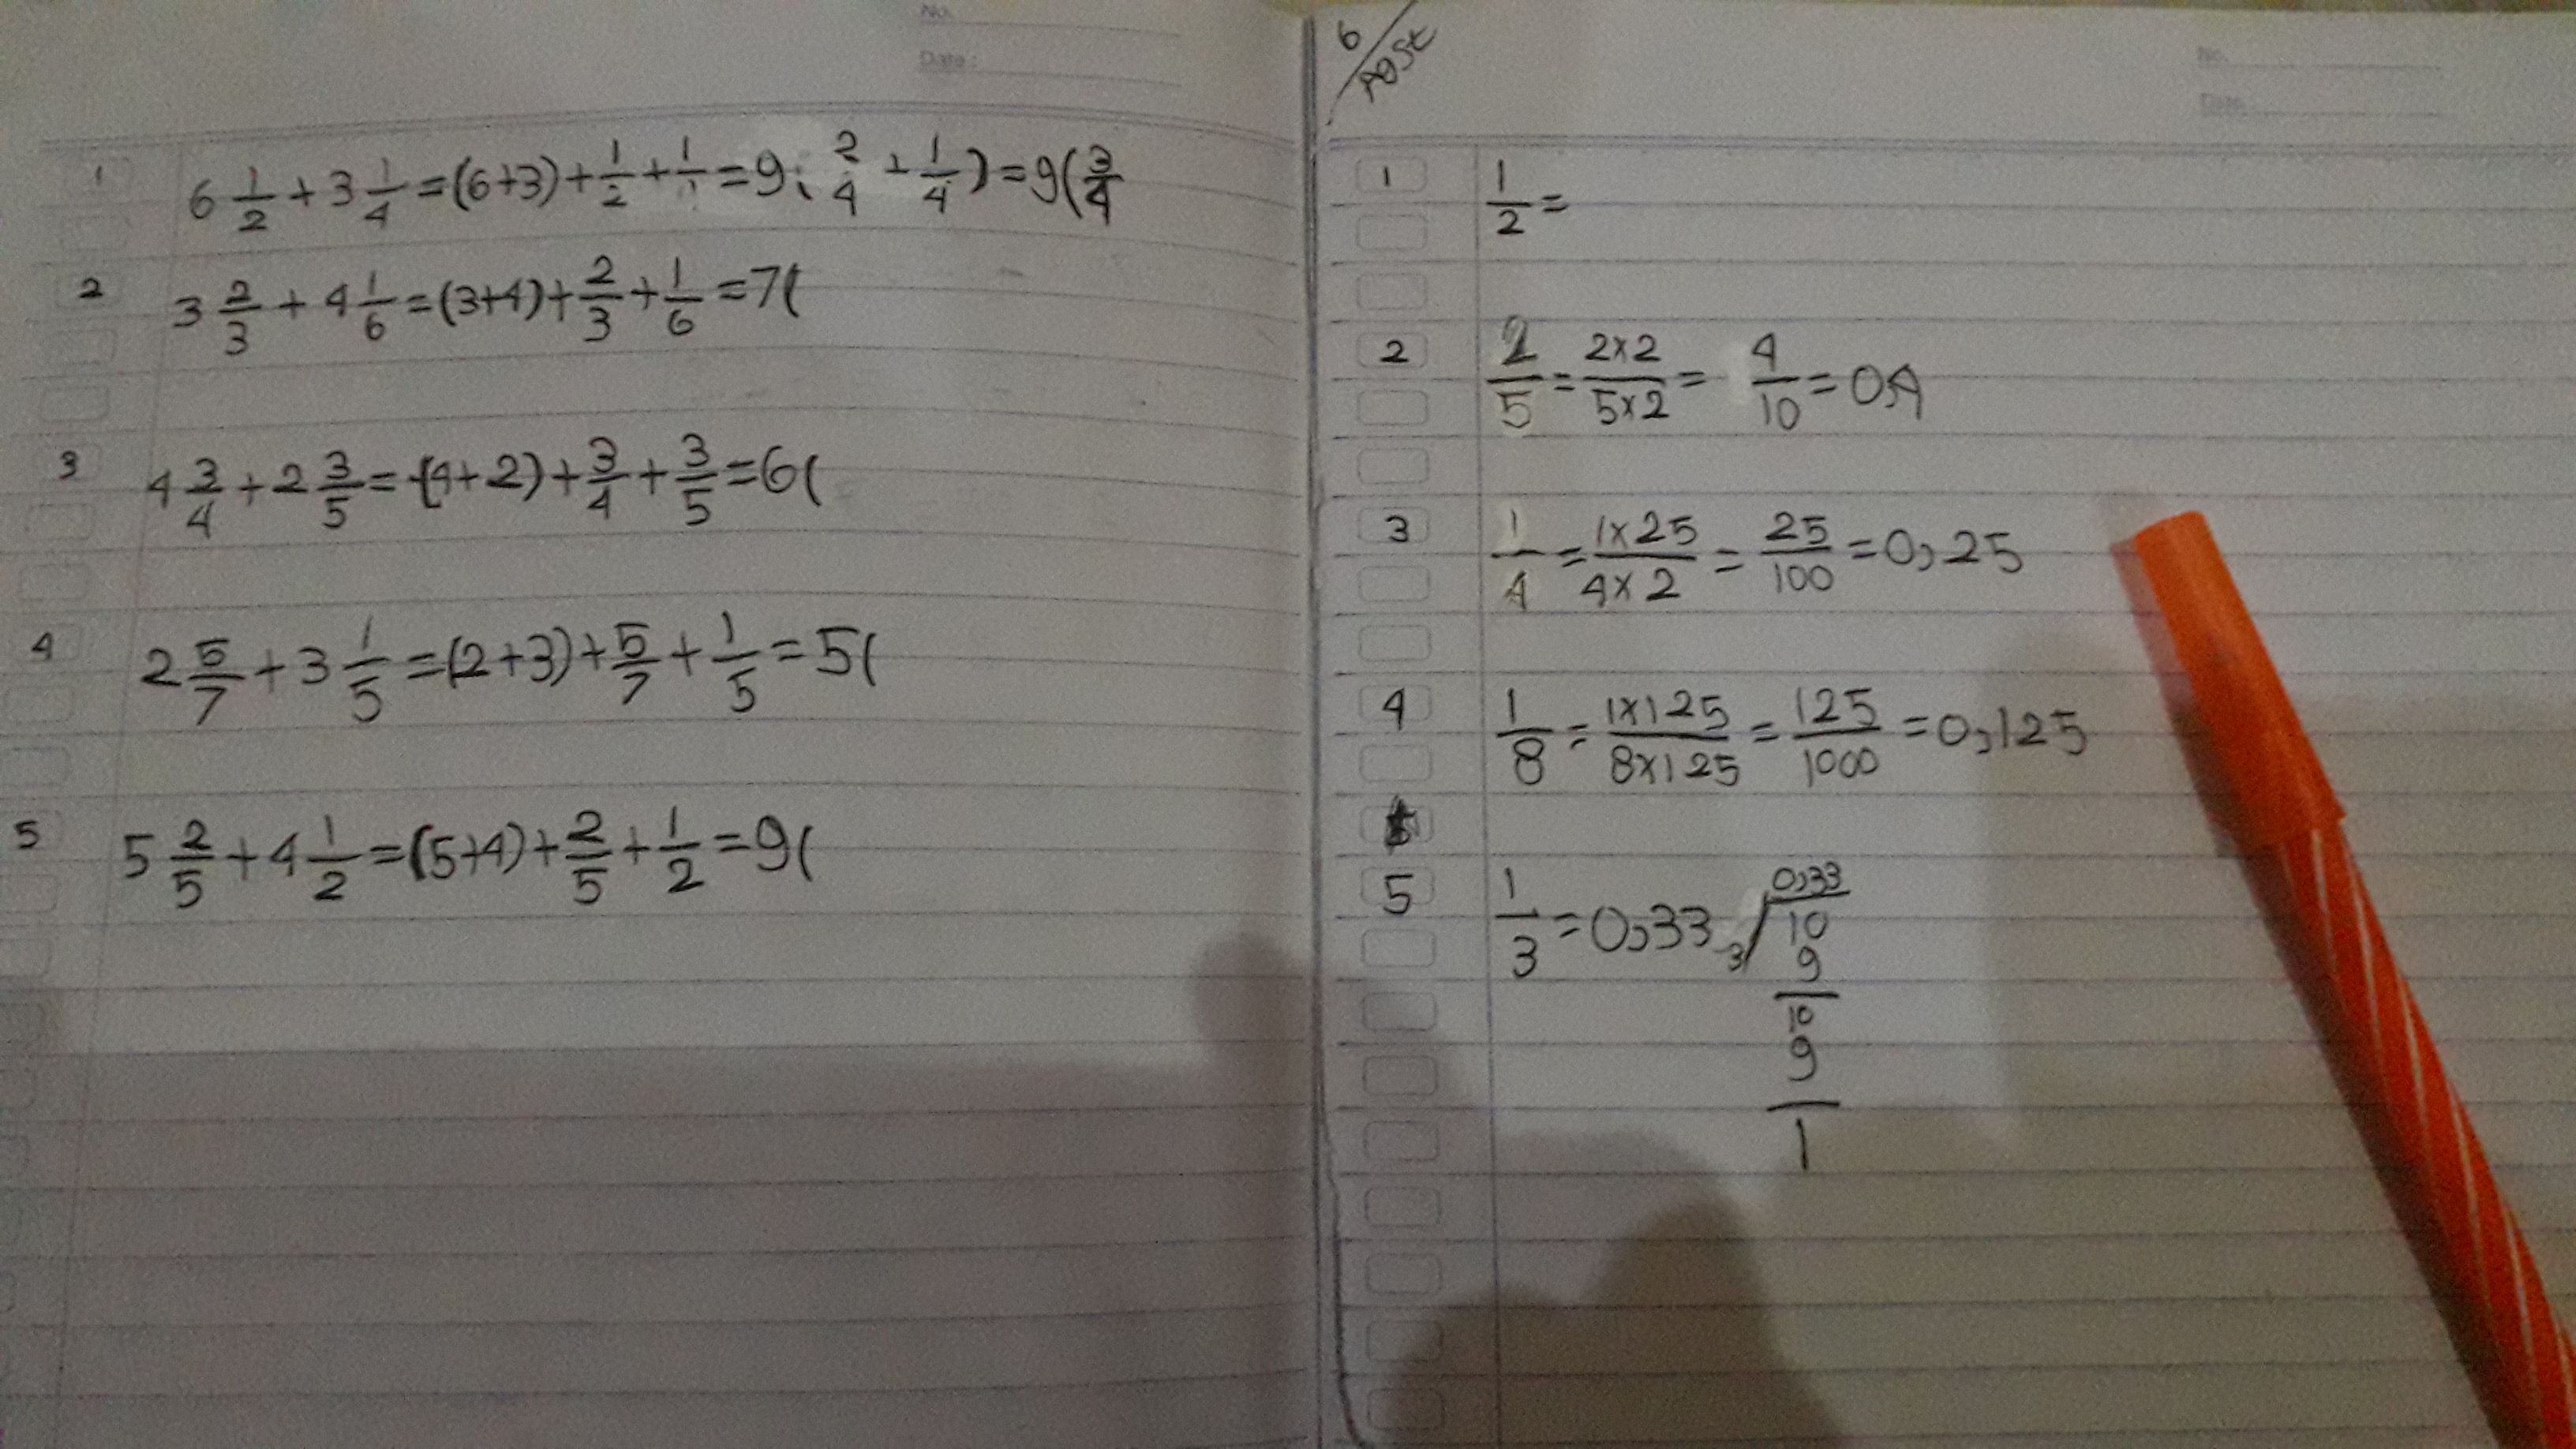 No.
Date :
1 6 1/2 + 3 1/4 = (6+3) + 1/2 + 1/1 = 9( 2/4 + 1/4 ) = 9( 3/4
2 3 2/3 + 4 1/6 = (3+4) + 2/3 + 1/6 = 7(
3 4 3/4 + 2 3/5 = (4+2) + 3/4 + 3/5 = 6(
4 2 5/7 + 3 1/5 = (2+3) + 5/7 + 1/5 = 5(
5 5 2/5 + 4 1/2 = (5+4) + 2/5 + 1/2 = 9(
6/Agst
No.
Date :
1 1/2 =
2 2/5 = 2x2/5x2 = 4/10 = 0,4
3 1/4 = 1x25/4x2 = 25/100 = 0,25
4 1/8 = 1x125/8x125 = 125/1000 = 0,125
5 1/3 = 0,33
0,33
3 10
9
10
9
1